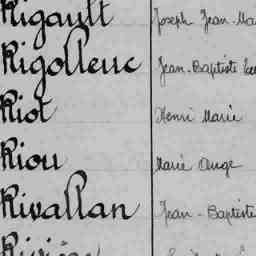 Rigault Joseph Jean-Ma
Rigolleuc Jean-Baptiste
Riot Henri Marie
Riou Marie Ange
Rivallan Jean-Baptiste